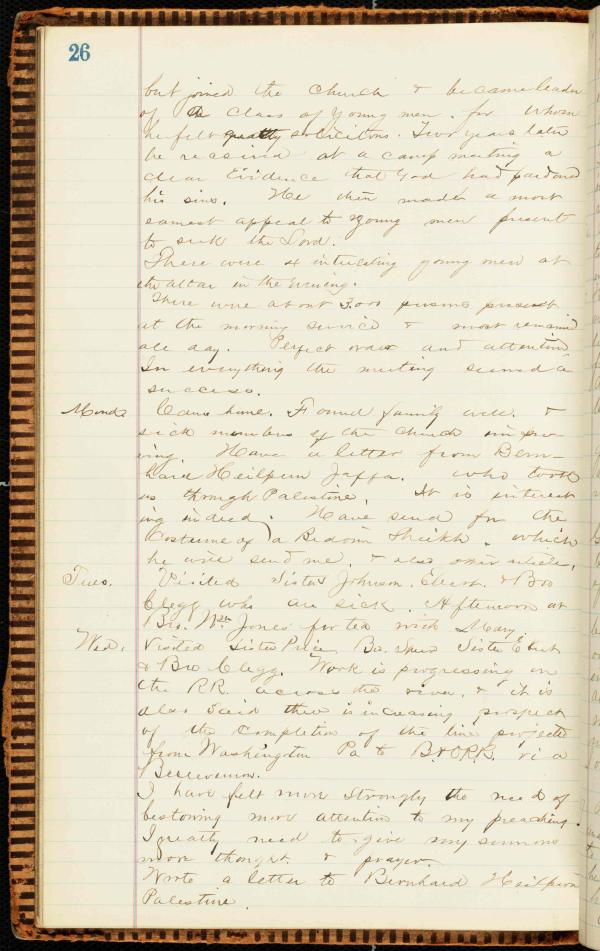 26
but joined the Church & became leader
of a class of young men, for whom
he felt greatly solicitous. Two years later
he received at a camp meeting a
clear Evidence that God had pardoned
his sins. He then made a most
earnest appeal to young men present
to seek the Lord.
There were 4 interesting young men at
the altar in the evening.
There were about 3.000 persons present
at the morning service & most remained
all day. Perfect order and attention
In everything the meeting seemed a
success.
Mond. Came home. Found family well. &
sick members of the church improv-
ing. Have a letter from Bern-
hard Heilpern Jaffa. who took
us through Palestine. It is interest
ing indeed. Have send for the
Costume of a Bedouin Sheikh. which
he will send me, & also other articles.
Tues. Visited Sister Johnson, & Bro
Clegg who are sick. Afternoon at
Bro. Wm Jones for tea with Mary
Wed. Visited Sister Price, Bro. Sister
& Bro Clegg. Work is progressing on
the R.R. across the river, & it is
also said there is increasing prospect
of the completion of the line projected
from Washington Pa to B&O.R.R. via
I have felt more strongly the need of
bestowing more attention to my preaching.
I greatly need to give my sermons
more thought & prayer.
Wrote a letter to Bernhard Heilpern
Palestine.